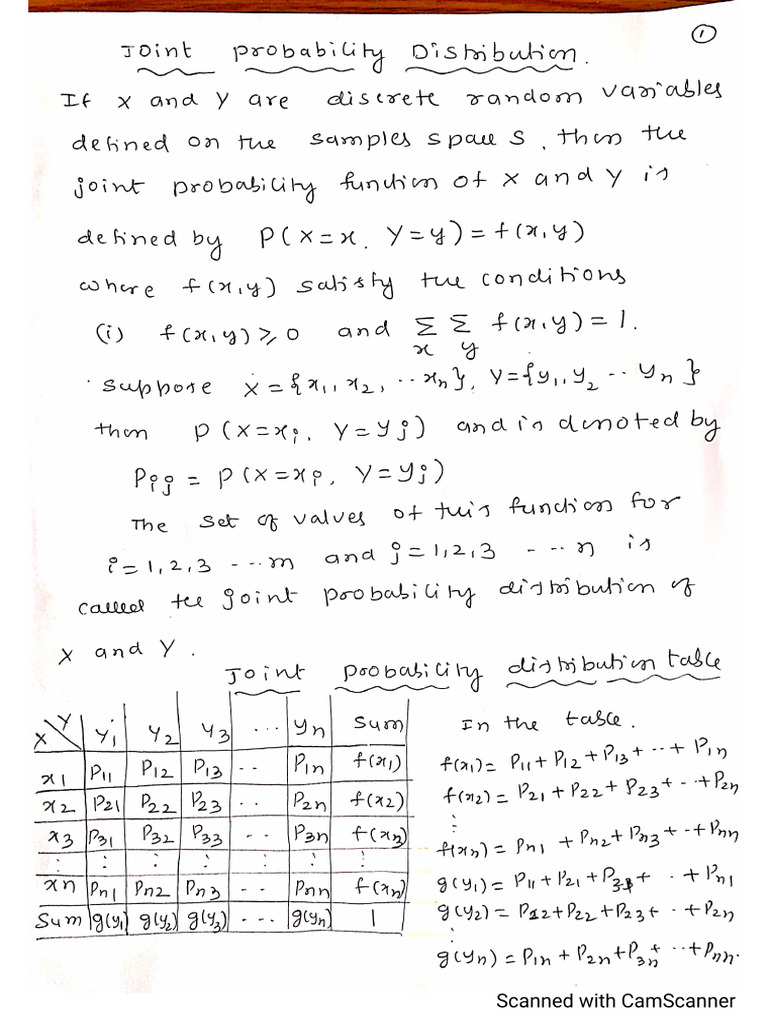 1
Joint Probability Distribution.
If X and Y are discrete random variables
defined on the samples space S, then the
joint probability function of X and Y is
defined by P(X=x, Y=y) = f(x,y)
where f(x,y) satisfy the conditions
(i) f(x,y) ⩾ 0 and Σ Σ f(x,y) = 1.
x y
Suppose X = {x1, x2, ·· xn}, Y = {y1, y2 ·· yn}
then P(X=xi, Y=yj) and is denoted by
Pij = P(X=xi, Y=yj)
The set of values of this function for
i = 1, 2, 3 ---- m and j = 1, 2, 3 ---- n is
called the joint probability distribution of
X and Y.
Joint Probability distribution table
X Y y1 y2 y3 ... yn Sum
x1 P11 P12 P13 .. P1n f(x1)
x2 P21 P22 P23 .. P2n f(x2)
x3 P31 P32 P33 .. P3n f(x3)
⋮ ⋮ ⋮ ⋮ ⋮ ⋮
xn Pn1 Pn2 Pn3 -- Pnn f(xn)
Sum g(y1) g(y2) g(y3) --- g(yn) 1
In the table.
f(x1) = P11 + P12 + P13 + ·· + P1n
f(x2) = P21 + P22 + P23 + ·· + P2n
⋮
f(xn) = Pn1 + Pn2 + Pn3 + ·· + Pnn
g(y1) = P11 + P21 + P31 + ·· + Pn1
g(y2) = P12 + P22 + P23 + ·· + P2n
⋮
g(yn) = P1n + P2n + P3n + ·· + Pnn.
Scanned with CamScanner